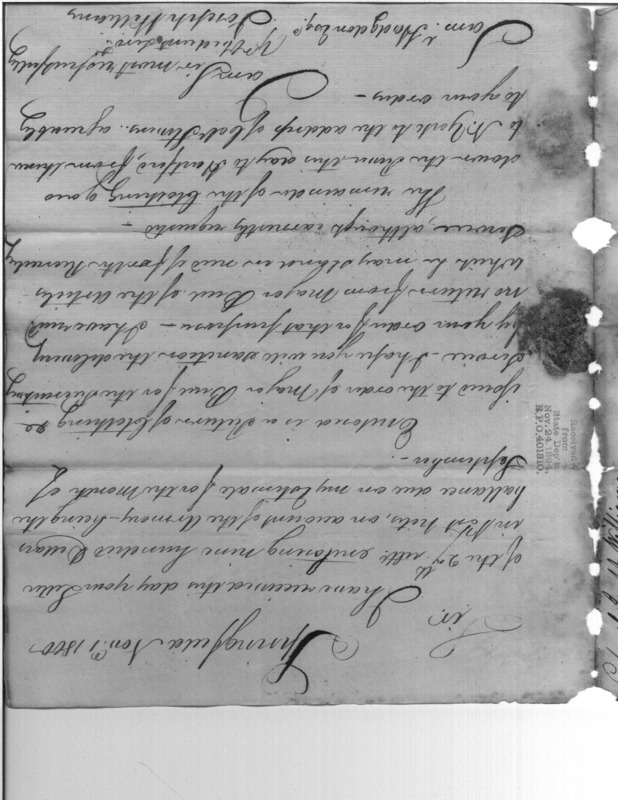 Springfield Nov.r 1 1800
Sir.
I have received this day your Letter
of the 27th ulto. enclosing nine hundred Dollars
in Post Notes, on account of the Armory – being the
ballance due on my Estimate for the Month of
September –.
Enclosed is a Return of Clothing &c
issued to the order of Major Buel for the Recruiting
Service – I hope you will sanction the delivery
by your order for that purpose – I have rec.d
no return from Major Buel of the articles
which he may stand in need of for the Recruiting
Service, although earnestly requested –
The remainder of the Clothing goes
down the River this day to Hartford, from thence
to N. York to the address of Col.o Stevens – agreeably
to your orders –
I am Sir most respectfully
Yr Obedient Serv.t
Joseph Williams
Sam.l Hodgdon Esq.r
Received
from
State Dep't
Nov. 24, 1894.
R.P.O. 401810.